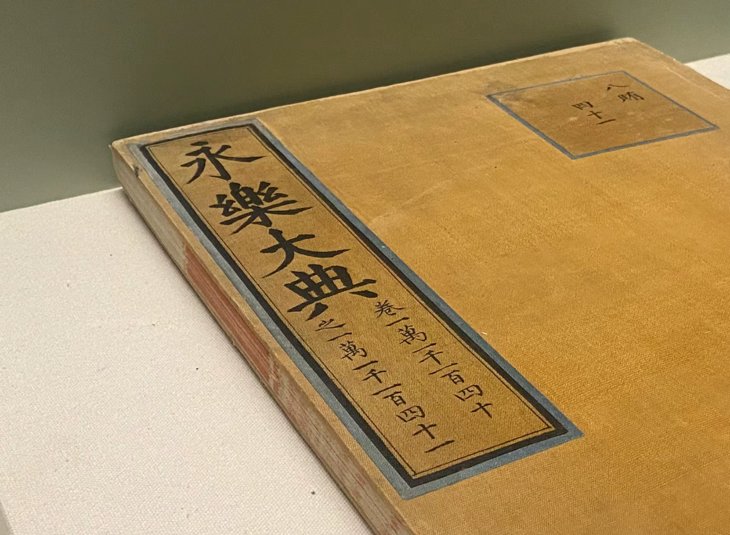 永樂大典
卷一萬一千一百四十
之一萬一千一百四十一
八賄
四十一